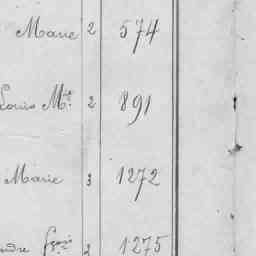 Marie 2 574
Louis Mie 2 891
Marie 3 1272
1275